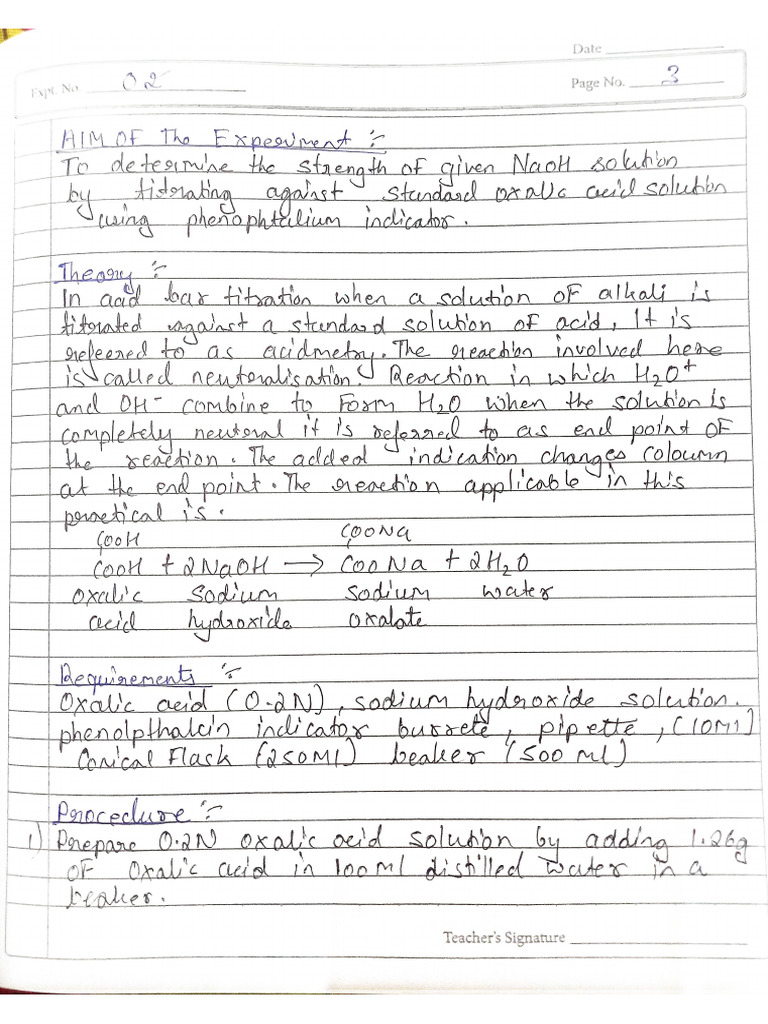 Date
Expt. No. 02
Page No. 3
AIM OF The Experiment :-
To determine the strength of given NaOH solution
by titrating against standard oxalic acid solution
using phenophtalium indicator.
Theory :-
In acid bar titration when a solution of alkali is
titrated against a standard solution of acid, It is
refeered to as acidmetry. The reaction involved here
is called neutralisation. Reaction in which H2O+
and OH- combine to Form H2O when the solution is
completely neutral it is referred to as end point of
the reaction. The added indication changes coloum
at the end point. The reaction applicable in this
practical is.
COOH COONa
COOH + 2NaOH → COONa + 2H2O
oxalic sodium sodium water
acid hydroxide oxalate
Requirements :-
Oxalic acid (0.2N), sodium hydroxide solution.
phenolpthalcin indicator burrete, pipette, (10Ml)
Conical Flask (250Ml) beaker (500 ml)
Procedure :-
1) Prepare 0.2N oxalic acid solution by adding 1.26g
of oxalic acid in 100ml distilled water in a
beaker.
Teacher's Signature